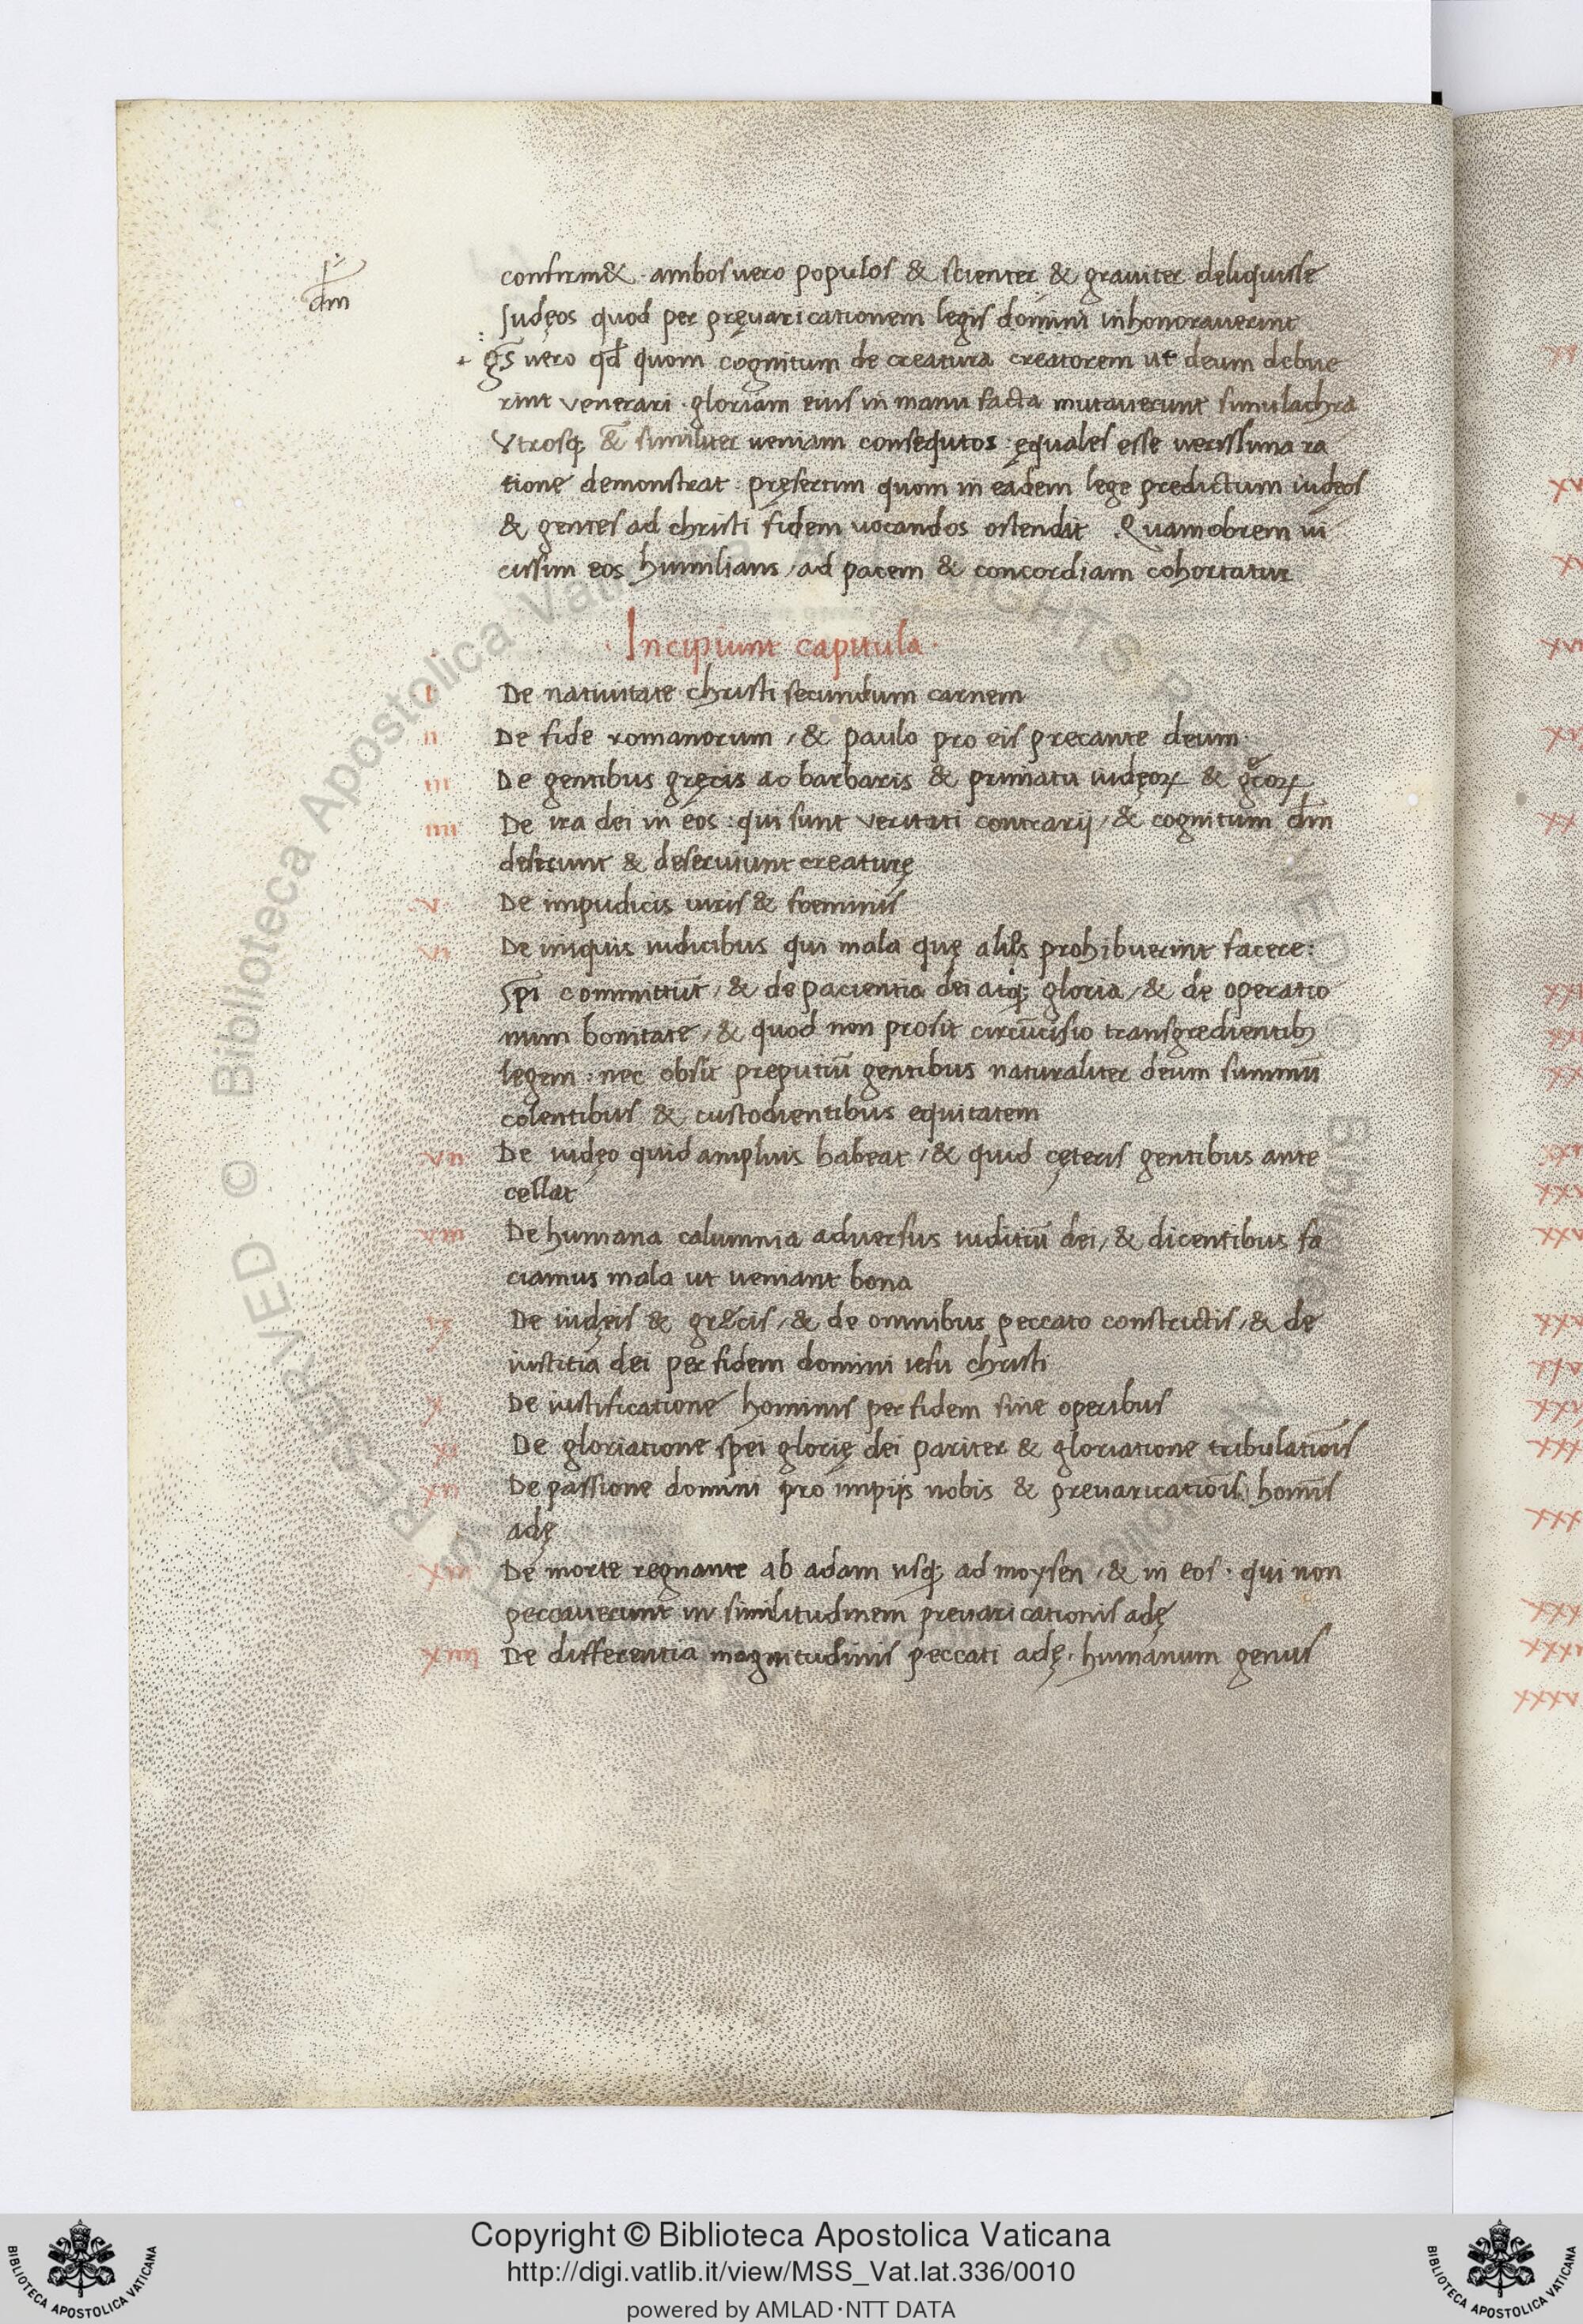 confirm& · ambos uero populos & scienter & grauiter deliquisse
dm̄
Iudęos quod per pręuaricationem legis domini inhonorauerint
gs̄ uero qđ quom cognitum de creatura creatorem ut deum debue
rint venerari · gloriam eius in manu facta mutauerunt simulachra
Vtrosq; &̄ similiter ueniam consequtos : ęquales esse uerissima ra
tione demonstrat : pręsertim quom in eadem lege predictum iudęos
& gentes ad christi fidem uocandos ostendit . Quamobrem ui
cissim eos humilians / ad pacem & concordiam cohortatur
· Incipiunt capitula ·
i De natiuitate christi secundum carnem
ii De fide romanorum / & paulo pro eis precante deum ·
iii De gentibus gręcis ac barbaris & primatu iudęoꝝ & gręcoꝝ
iiii De ira dei in eos : qui sunt veritati contrarij / & cognitum dm̄
deserunt & deseruiunt creaturę
v De impudicis uiris & foeminis
vi De iniquis iudicibus qui mala quę aliis prohibuerint facere :
ip̄i committūt / & de pacientia dei atq; gloria / & de operatio
num bonitate / & quod non prosit circūcisio transgredientib;
legem : nec obsit preputiū gentibus naturaliter deum summū
colentibus & custodientibus equitatem
vii De iudęo quid amplius habeat / & quid cęteris gentibus ante
cellat
viii De humana calumnia aduersus iuditiū dei / & dicentibus fa
ciamus mala ut ueniant bona
ix De iudęis & gręcis / & de omnibus peccato constrictis / & de
iustitia dei per fidem domini iesu christi
x De iustificatione hominis per fidem sine operibus
xi De gloriatione spei glorię dei pariter & gloriatione tribulatiōis
xii De passione domini pro impijs nobis & preuaricatiōis homīs
adę
xiii De morte regnante ab adam usq; ad moysen / & in eos · qui non
peccauerunt in similitudinem preuaricationis adę
xiiii De differentia magnitudinis peccati adę · humanum genus
Copyright © Biblioteca Apostolica Vaticana
http://digi.vatlib.it/view/MSS_Vat.lat.336/0010
powered by AMLAD·NTT DATA
BIBLIOTECA APOSTOLICA VATICANA
BIBLIOTECA APOSTOLICA VATICANA